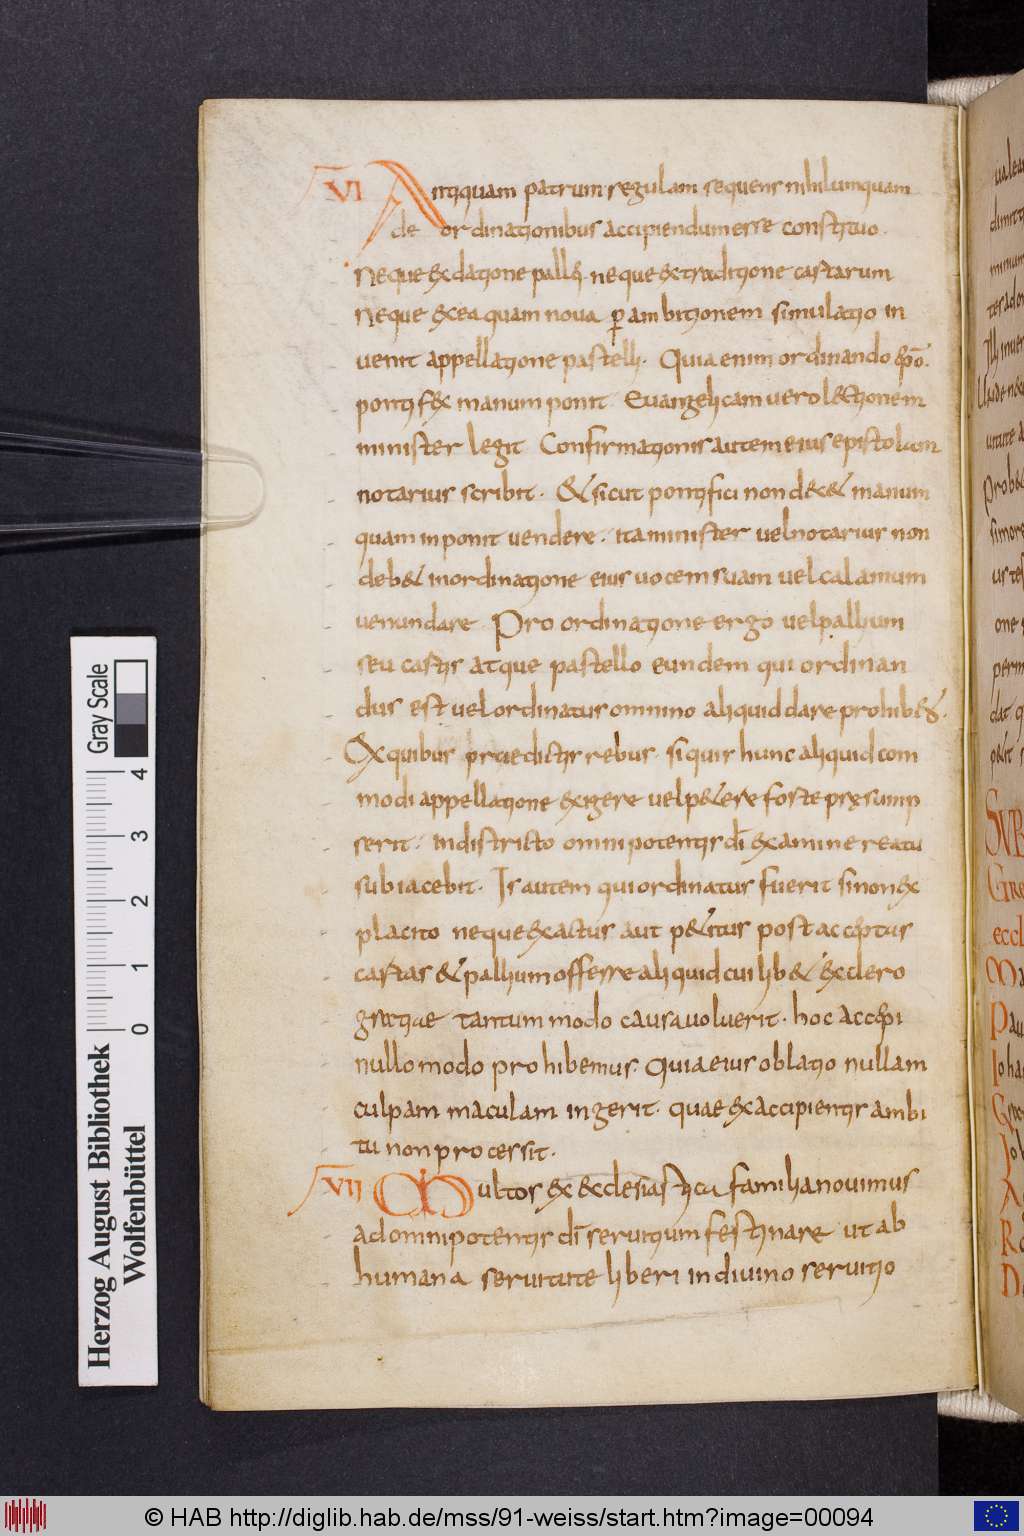 VI Antiquam patrum regulam sequens nihil umquam
de ordinationibus accipiendum esse constituo.
Neque ex datione pallii. neque ex traditione cartarum
Neque ex ea quam nova per ambitionem simulatio in
venit appellatione pastelli. Quia enim ordinando epo.
pontifex manum ponit Evangelicam vero lectionem
minister legit Confirmationis autem eius epistolam
notarius scribit. Et sicut pontifici non decet manum
quam inponit vendere. ita minister vel notarius non
debet in ordinatione eius vocem suam vel calamum
venundare Pro ordinatione ergo vel pallium
seu cartis atque pastello eundem qui ordinan
dus est vel ordinatur omnino aliquid dare prohibeo.
Ex quibus praedictis rebus. si quis hunc aliquid com
modi appellatione exigere vel petere forte pręsump
serit. in districto omnipotentis di examine reatu
subiacebit. Is autem qui ordinatus fuerit si non ex
placito neque exactus aut petitus post acceptas
cartas et pallium offerre aliquid cuilibet ex clero
gratiae tantummodo causa voluerit. hoc accipi
nullo modo prohibemus. Quia eius oblatio nullam
culpam maculam ingerit. quae ex accipientis ambi
tu non processit.
VII Multos ex ecclesiastica familia novimus
ad omnipotentis di servitium festinare ut ab
humana servitute liberi in divino servitio
Herzog August Bibliothek
Wolfenbüttel
0 1 2 3 4
Gray Scale
© HAB http://diglib.hab.de/mss/91-weiss/start.htm?image=00094